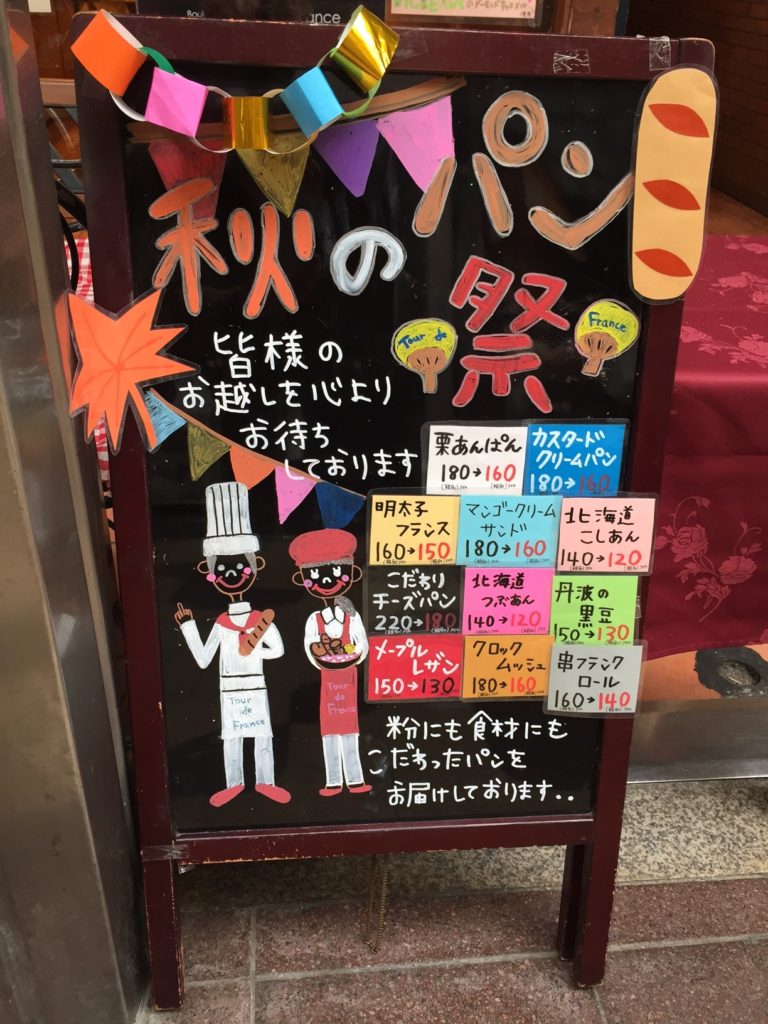 秋のパン
祭
Tour de
France
皆様の
お越しを心より
お待ち
しております
栗あんぱん
180→160
カスタード
クリームパン
180→160
明太子
フランス
160→150
マンゴークリーム
サンド
180→160
北海道
こしあん
140→120
こだわり
チーズパン
220→180
北海道
つぶあん
140→120
丹波の
黒豆
150→130
メープル
レザン
150→130
クロック
ムッシュ
180→160
串フランク
ロール
160→140
Tour
de
France
Tour
de
France
粉にも食材にも
こだわったパンを
お届けしております..